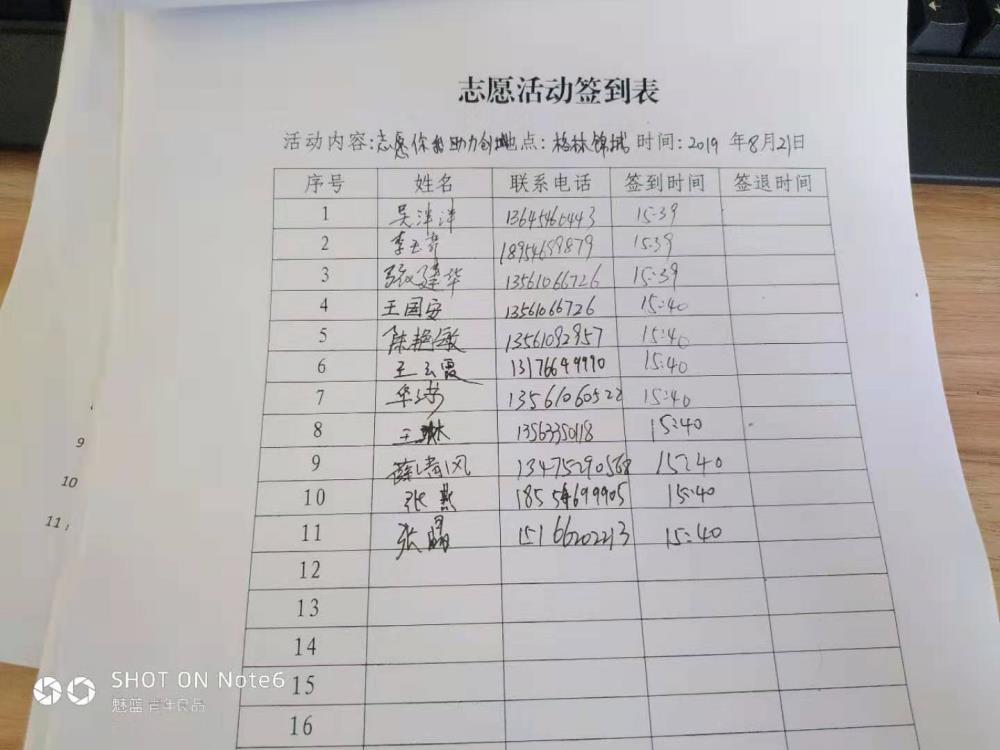 志愿活动签到表
活动内容:志愿你我助力创城地点:格林锦城时间:2019年8月21日
序号 姓名 联系电话 签到时间 签退时间
1 吴洋洋 13645460443 15:39
2 18954699879 15:39
3 张建华 13561066726 15:39
4 王国安 13561066726 15:40
5 陈艳敏 13561092957 15:40
6 王云霞 13176649990 15:40
7 华 13561060522 15:40
8 王琳 13563350118 15:40
9 薛清风 13475290568 15:40
10 张燕 18554699905 15:40
11 张 15166202213 15:40
12
13
14
15
16
9
10
11
SHOT ON Note6
魅蓝 青年良品